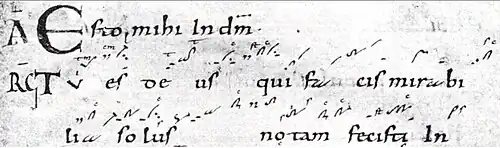 A Esto mihi In dm
RG Tu es de us qui fa cis mirabi
lia solus notam fecisti In